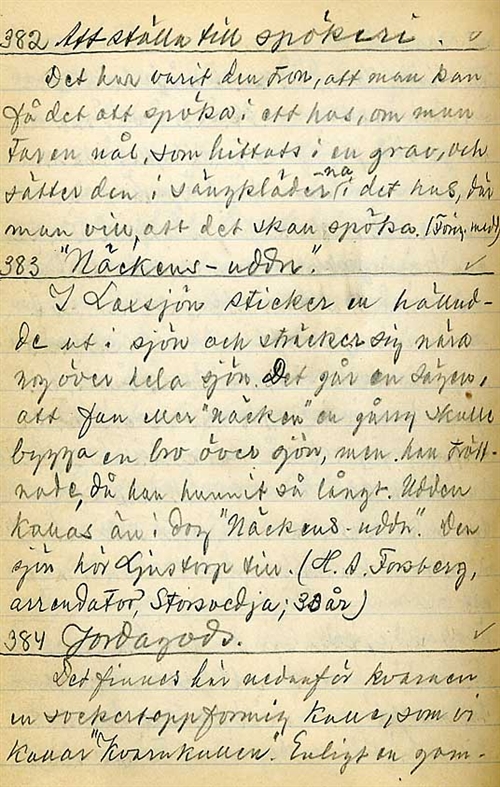 382 Att ställa till spökeri.
Det har varit den tron, att man kan
få det att spöka i ett hus, om man
tar en nål, som hittats i en grav, och
sätter den i sängkläderna i det hus, där
man vill, att det skall spöka. (Förig. med.)
383 "Näckens-uddn".
I Laxsjön sticker en hällud-
de ut i sjön och sträcker sig nära
nog över hela sjön. Det går en sägen,
att fan eller "näcken" en gång skulle
bygga en bro över sjön, men han trött-
nade, då han hunnit så långt. Udden
kallas än i dag "Näckens-uddn". Den
sjön hör Ljustorp till. (H. A. Forsberg,
arrendator, Storsvedja; 33 år)
384 Jordagods.
Det finnes här nedanför kvarnen
en sockertoppformig kulle, som vi
kallar "Kvarnkullen". Enligt en gam-